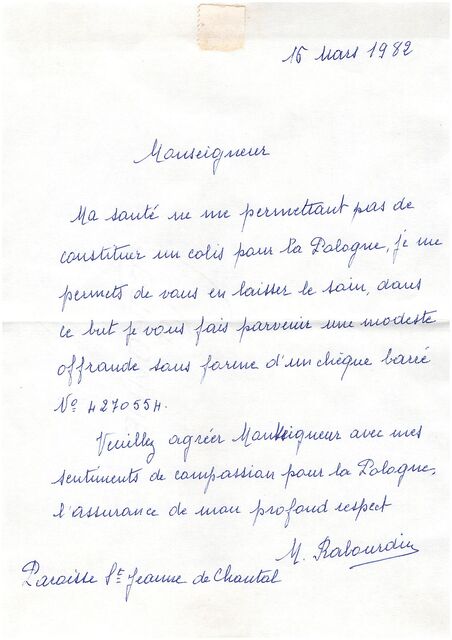 15 Mars 1982
Monseigneur
Ma santé ne me permettant pas de
constituer un colis pour la Pologne, je me
permets de vous en laisser le soin, dans
ce but je vous fais parvenir une modeste
offrande sous forme d'un chèque barré
Nº 4270554.
Veuillez agréer Monseigneur avec mes
sentiments de compassion pour la Pologne,
l'assurance de mon profond respect
M. Rabourdin
Paroisse Ste Jeanne de Chantal